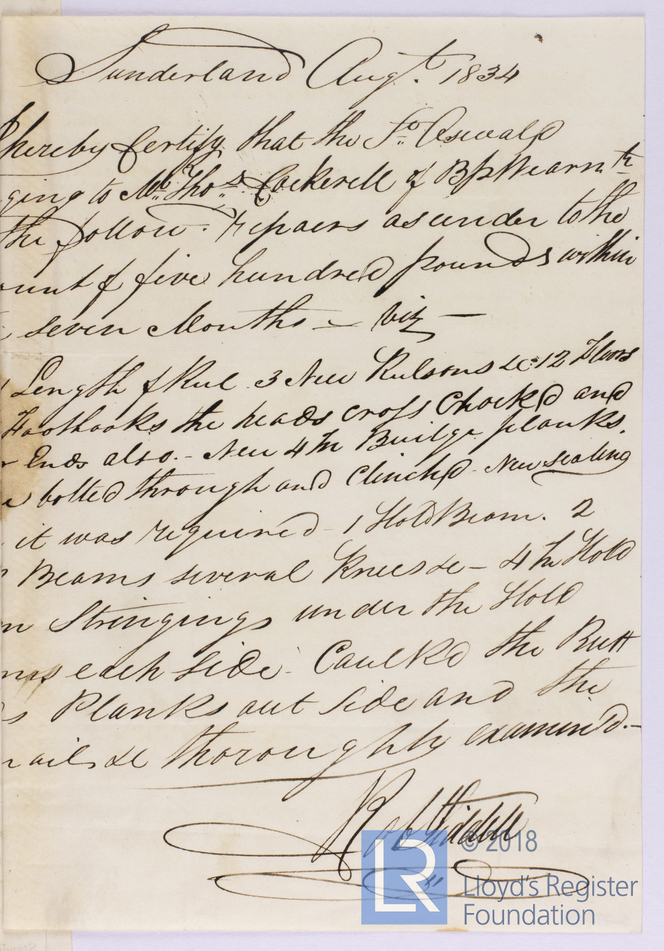 Sunderland Augt. 1834
I hereby Certify that the Jo. Oswald
ging to Mr. Thos. Cockerell of BpWearmth
the follow. repairs as under to the
ount of five hundred pounds within
seven Months — Viz —
Length of Keel 3 New Kelsons &c 12 Floors
Foothooks the heads cross Chock'd and
Ends also. - New 4 In Buidge planks.
bolted through and Clinch'd - New sealing
it was required - 1 Hold Beam. 2
Beams several Knees &c - 4 In Hold
Stringings under the Hold
ms each side. Caulk'd the Butt
s Planks out side and the
nails &c thoroughly examin'd. -
© 2018
LR
Lloyd's Register
Foundation